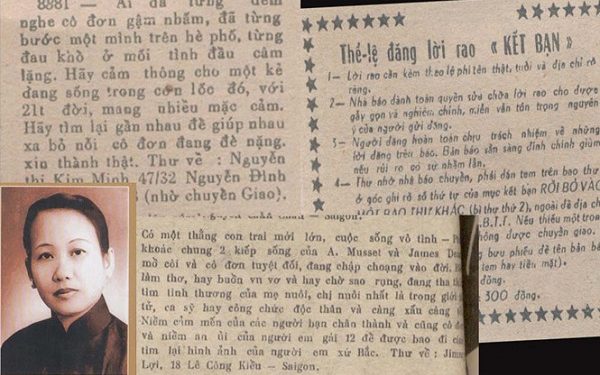 8881 — Ai đã từng đêm
nghe cô đơn gậm nhấm, đã từng
bước một mình trên hè phố, từng
đau khổ ở mối tình đầu câm
lặng. Hãy cảm thông cho một kẻ
đang sống trong cơn lốc đó, với
21t đời, mang nhiều mặc cảm.
Hãy tìm lại gần nhau để giúp nhau
xa bỏ nỗi cô đơn đang đè nặng.
xin thành thật. Thư về : Nguyễn
thị Kim Minh 47/32 Nguyễn Đình
(nhờ chuyển Giao).
Thể-lệ đăng lời rao « KẾT BẠN »
1— Lời rao cần kèm theo lệ phí tên thật, tuổi và địa chỉ rõ
ràng.
2— Nhà báo dành toàn quyền sửa chữa lời rao cho được
gẫy gọn và nghiêm chỉnh, miễn vẫn tôn trọng nguyên
ý của người gửi đăng.
3— Người đăng hoàn toàn chịu trách nhiệm về những
lời đăng trên báo. Bản báo sẵn sàng đính chính giùm
nếu rủi ro có sự nhầm lẫn.
4— Thư nhờ nhà báo chuyển, phải dán tem trên bao thư
ở góc ghi rõ số thứ tự của mục kết bạn RỒI BỎ VÀO
MỘT BAO THƯ KHÁC (bì thư thứ 2), ngoài đề địa ch
.B.T.T. Nếu thiếu một tron
hông được chuyển giao.
ng bưu phiếu đề tên bản bá
tem hay tiền mặt).
300 đồng.
Saigon.
Có một thằng con trai mới lớn, cuộc sống vô tình —
khoác chung 2 kiếp sống của A. Mussel và James Dea
mồ côi và cô đơn tuyệt đối, đang chập choạng vào đời.
làm thơ, hay buồn vu vơ và hay chờ sao rụng, đang tha th
tìm tình thương của mẹ nuôi, chị nuôi nhất là trong giới
tử, ca sỹ hay công chức độc thân và càng xấu càng
Niềm cảm mến của các người bạn chân thành và cũng cô đ
và niềm an ủi của người em gái 12 để được bao đi
tìm lại hình ảnh của người em xứ Bắc. Thư về : Jimm
Lợi, 18 Lê Công Kiều — Saigon.